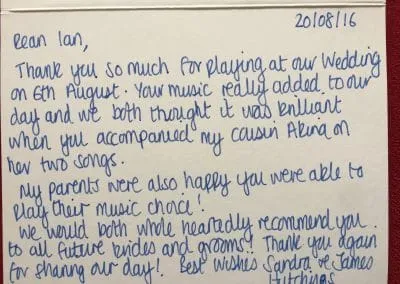 20/08/16
Dear Ian,
Thank you so much for playing at our Wedding
on 6th August. Your music really added to our
day and we both thought it was brilliant
when you accompanied my cousin Akina on
her two songs.
My parents were also happy you were able to
play their music choice!
We would both whole heartedly recommend you
to all future brides and grooms! Thank you again
for sharing our day! Best Wishes Sandra & James
Hutchings